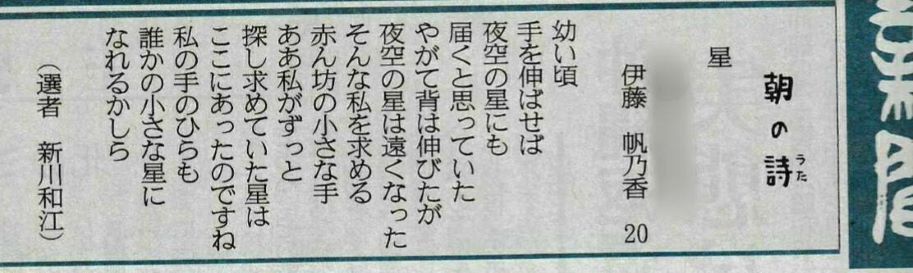 産経抄
朝の詩
うた
星
伊藤 帆乃香 20
幼い頃
手を伸ばせば
夜空の星にも
届くと思っていた
やがて背は伸びたが
夜空の星は遠くなった
そんな私を求める
赤ん坊の小さな手
ああ私がずっと
探し求めていた星は
ここにあったのですね
私の手のひらも
誰かの小さな星に
なれるかしら
(選者 新川和江)